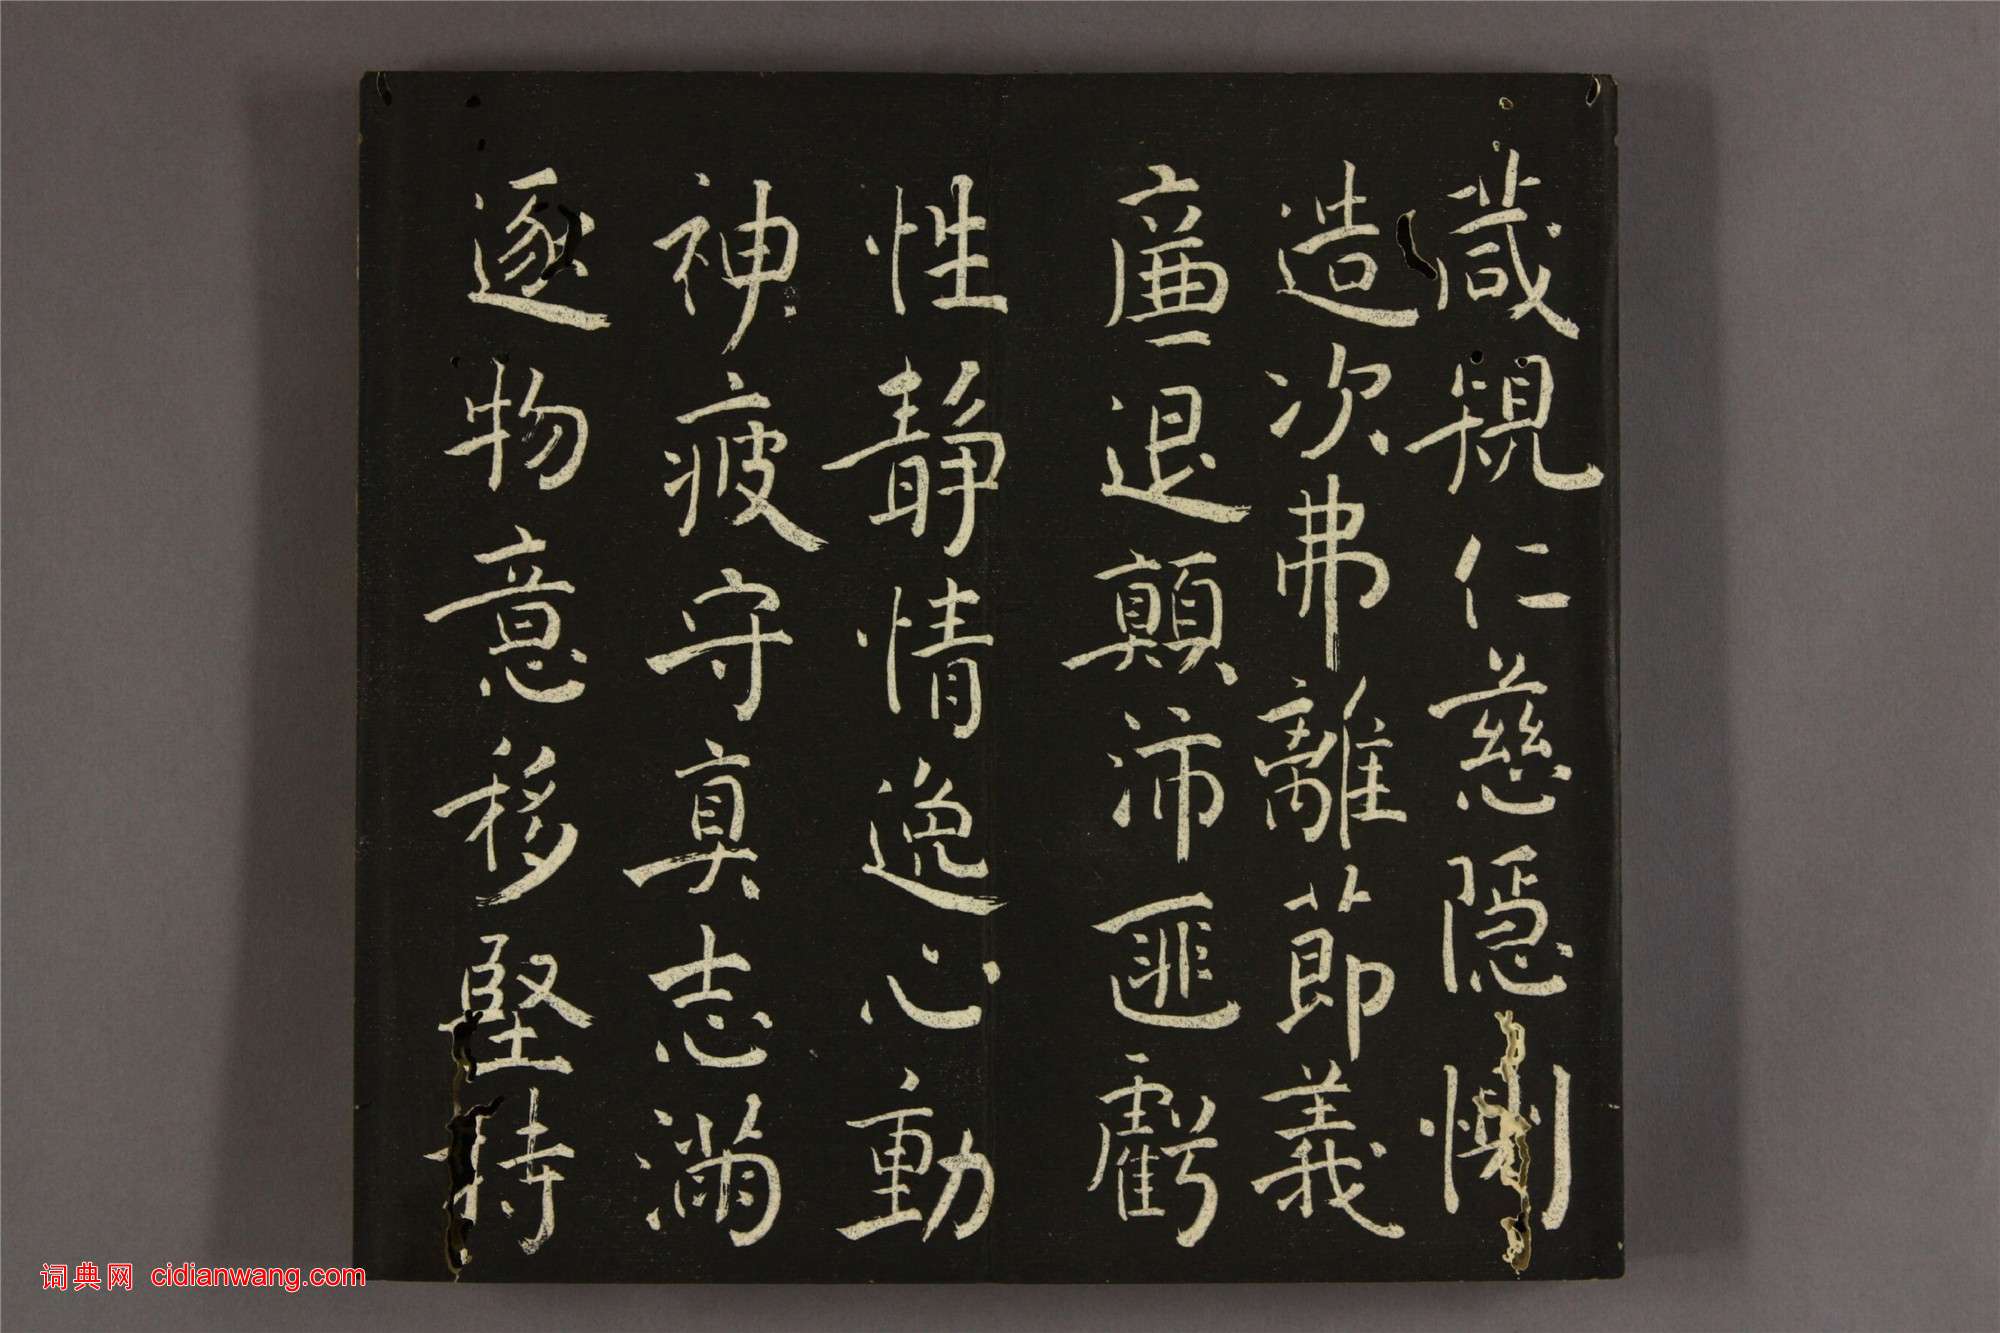 箴規仁慈隱惻
造次弗離節義
廉退顛沛匪虧
性靜情逸心動
神疲守真志滿
逐物意移堅持
词典网 cidianwang.com